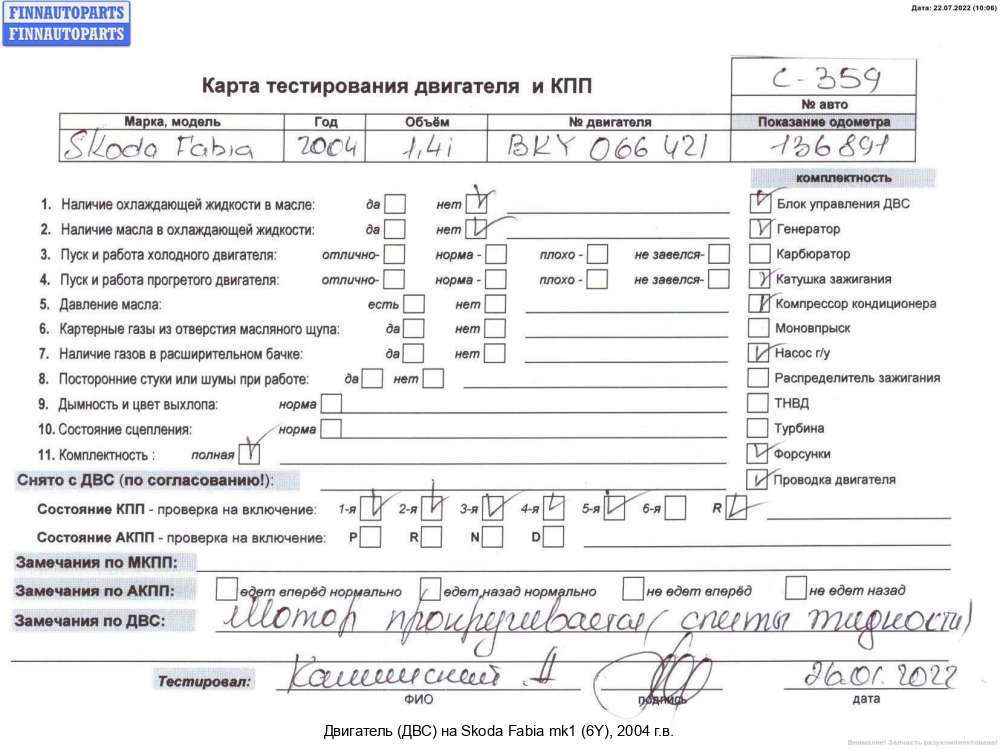 FINNAUTOPARTS
FINNAUTOPARTS
Дата: 22.07.2022 (10:06)
Карта тестирования двигателя и КПП
С-359
№ авто
Марка, модель Год Объём № двигателя Показание одометра
Skoda Fabia 2004 1,4i BKY 066 421 136891
комплектность
1. Наличие охлаждающей жидкости в масле: да нет Блок управления ДВС
2. Наличие масла в охлаждающей жидкости: да нет Генератор
3. Пуск и работа холодного двигателя: отлично- норма - плохо - не завелся- Карбюратор
4. Пуск и работа прогретого двигателя: отлично- норма - плохо - не завелся- Катушка зажигания
5. Давление масла: есть нет Компрессор кондиционера
6. Картерные газы из отверстия масляного щупа: да нет Моновпрыск
7. Наличие газов в расширительном бачке: да нет Насос г/у
8. Посторонние стуки или шумы при работе: да нет Распределитель зажигания
9. Дымность и цвет выхлопа: норма ТНВД
10. Состояние сцепления: норма Турбина
11. Комплектность : полная Форсунки
Снято с ДВС (по согласованию!): Проводка двигателя
Состояние КПП - проверка на включение: 1-я 2-я 3-я 4-я 5-я 6-я R
Состояние АКПП - проверка на включение: P R N D
Замечания по МКПП:
Замечания по АКПП: едет вперёд нормально едет назад нормально не едет вперёд не едет назад
Замечания по ДВС: Мотор прокручивается (слиты жидкости)
Тестировал: Калинский А 26.01.2022
ФИО подпись дата
Двигатель (ДВС) на Skoda Fabia mk1 (6Y), 2004 г.в.
Внимание! Запчасть разукомплектована!